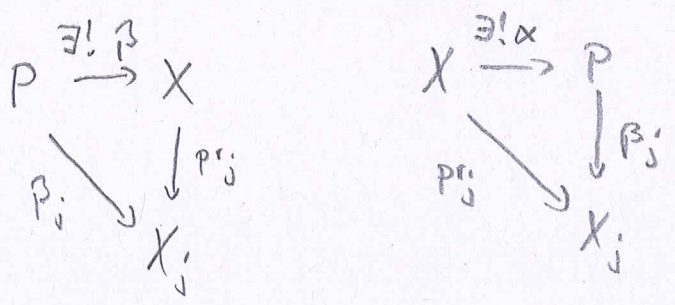 ∃! β
P → X
β_j
pr_j
X_j
∃! α
X → P
pr_j
β_j
X_j